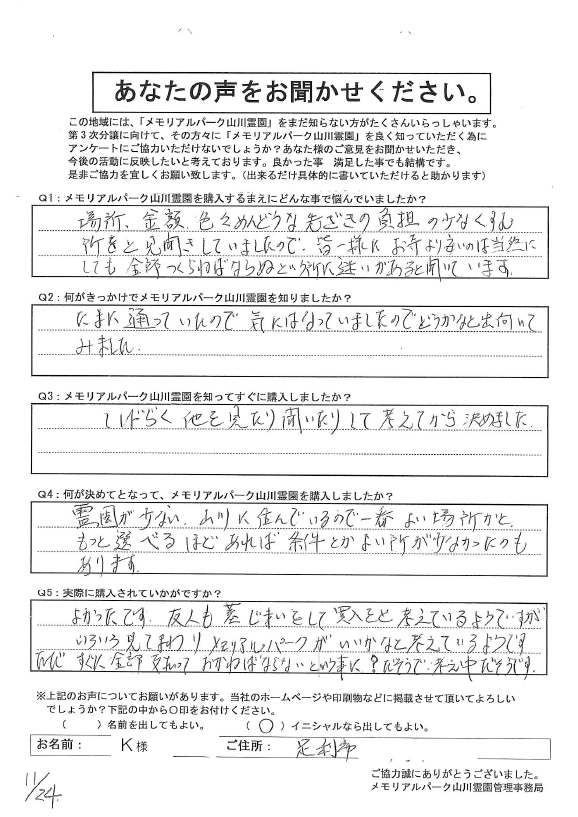 あなたの声をお聞かせください。
この地域には、「メモリアルパーク山川霊園」をまだ知らない方がたくさんいらっしゃいます。
第3次分譲に向けて、その方々に「メモリアルパーク山川霊園」を良く知っていただく為に
アンケートにご協力いただけないでしょうか？あなた様のご意見をお聞かせいただき、
今後の活動に反映したいと考えております。良かった事　満足した事でも結構です。
是非ご協力を宜しくお願い致します。（出来るだけ具体的に書いていただけると助かります）
Q1：メモリアルパーク山川霊園を購入するまえにどんな事で悩んでいましたか？
場所、金額、色々めんどうな先ざきの負担の少なくすむ
所をと見聞きしていましたので、皆一様にお寺より安いのは当然に
しても全部つくらねばならぬという所に迷いがあると聞いています。
Q2：何がきっかけでメモリアルパーク山川霊園を知りましたか？
たまに通っていたので気にはなっていましたのでどうかなと出向いて
みました。
Q3：メモリアルパーク山川霊園を知ってすぐに購入しましたか？
しばらく他を見たり聞いたりして考えてから決めました
Q4：何が決めてとなって、メモリアルパーク山川霊園を購入しましたか？
霊園が少ない。山川に住んでいるので一番よい場所かと。
もっと選べるほどあれば条件とかよい所が少なかったのも
あります。
Q5：実際に購入されていかがですか？
よかったです。友人も墓じまいをして買入をと考えているようですが
いろいろ見てまわりメモリアルパークがいいかなと考えているようです
ただすぐに全部 おかねばならないという事に？だそうで、考え中だそうです。
※上記のお声についてお願いがあります。当社のホームページや印刷物などに掲載させて頂いてよろしい
でしょうか？下記の中から○印をお付けください。
（　　）名前を出してもよい。　（○）イニシャルなら出してもよい。
お名前：　K様　ご住所：　足利市
ご協力誠にありがとうございました。
メモリアルパーク山川霊園管理事務局
11/24.